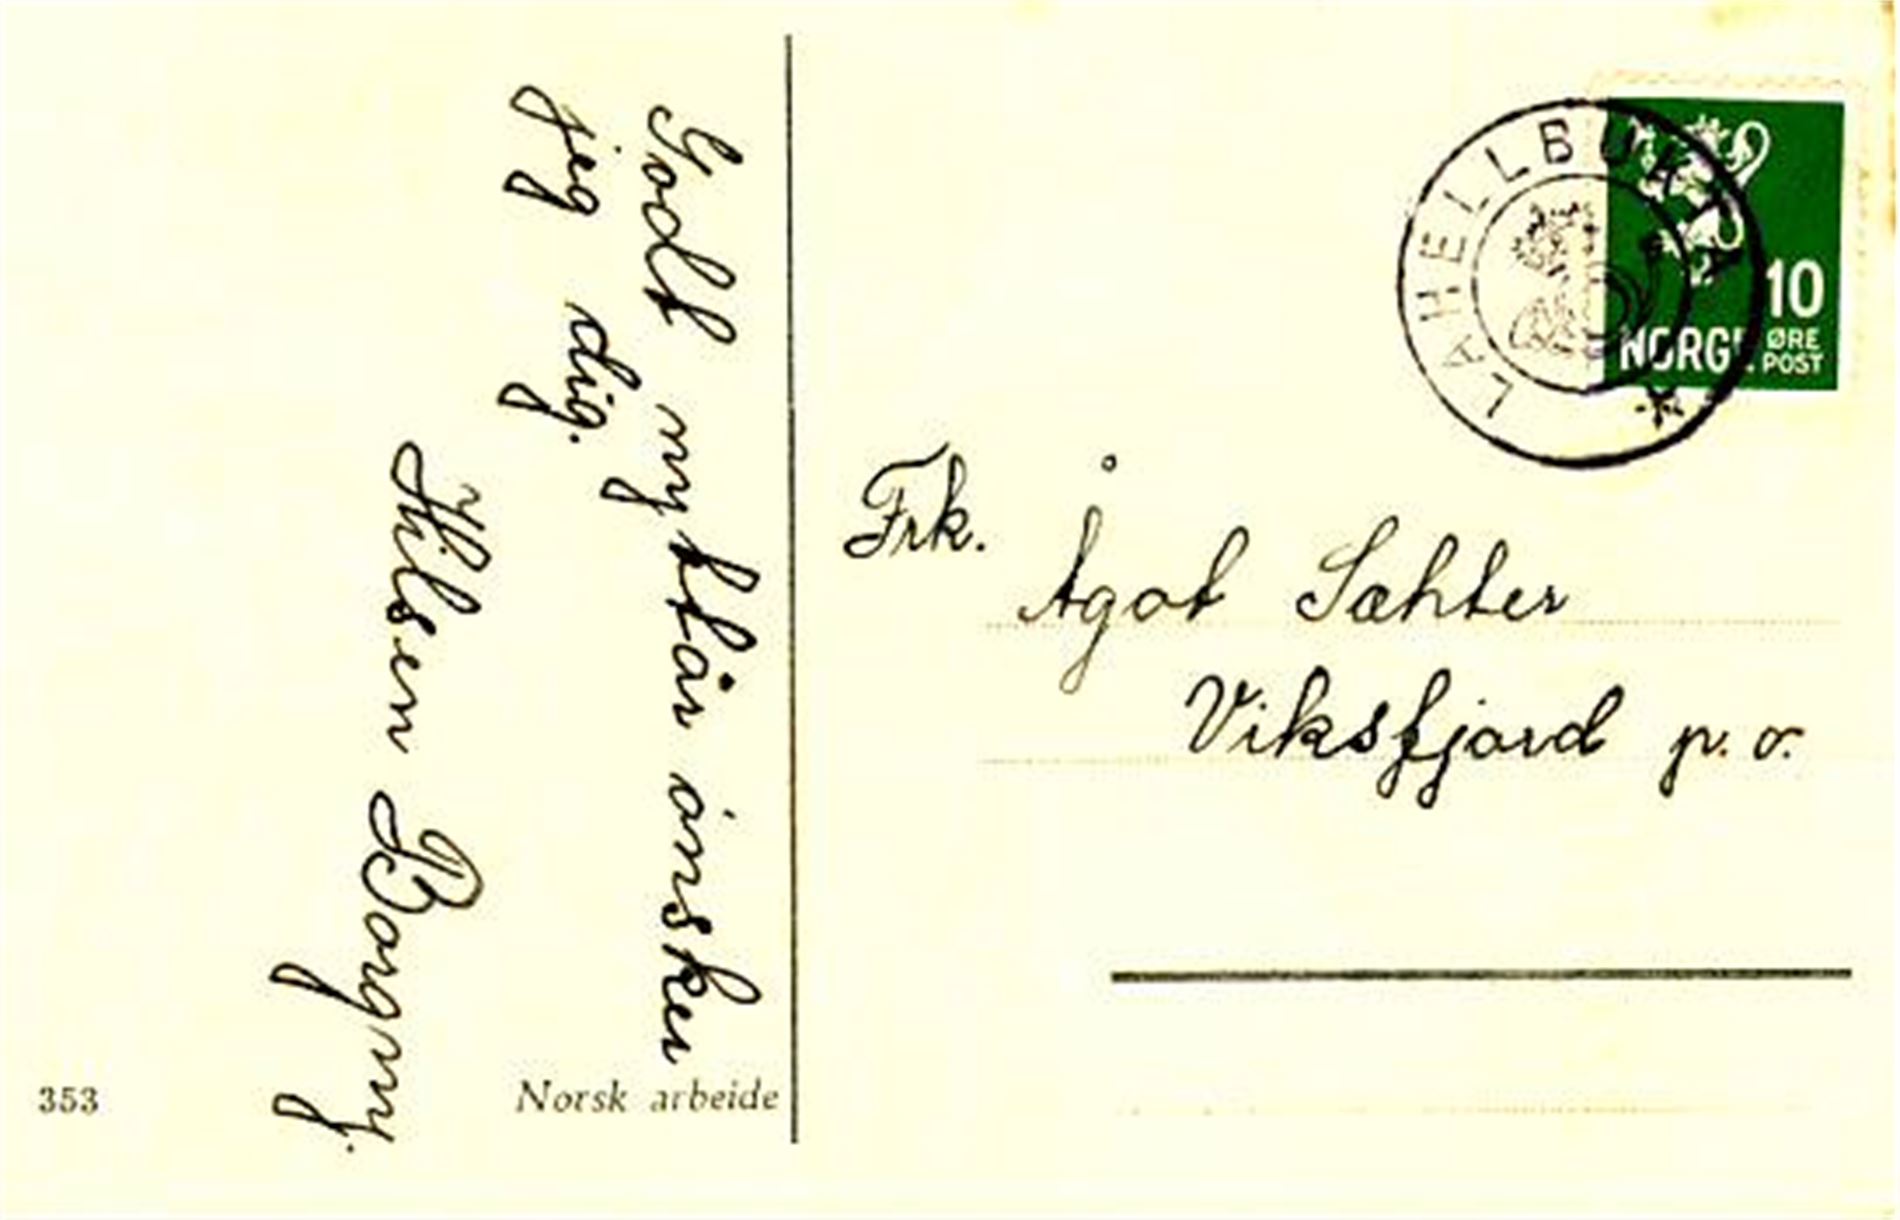 Godt nyttår ønsker
jeg dig.
Hilsen Borgny.
353
Norsk arbeide
LAHELLBUKTA
10
NORGE
ØRE
POST
Frk.
Ågot Sæhter
Viksfjord p.o.